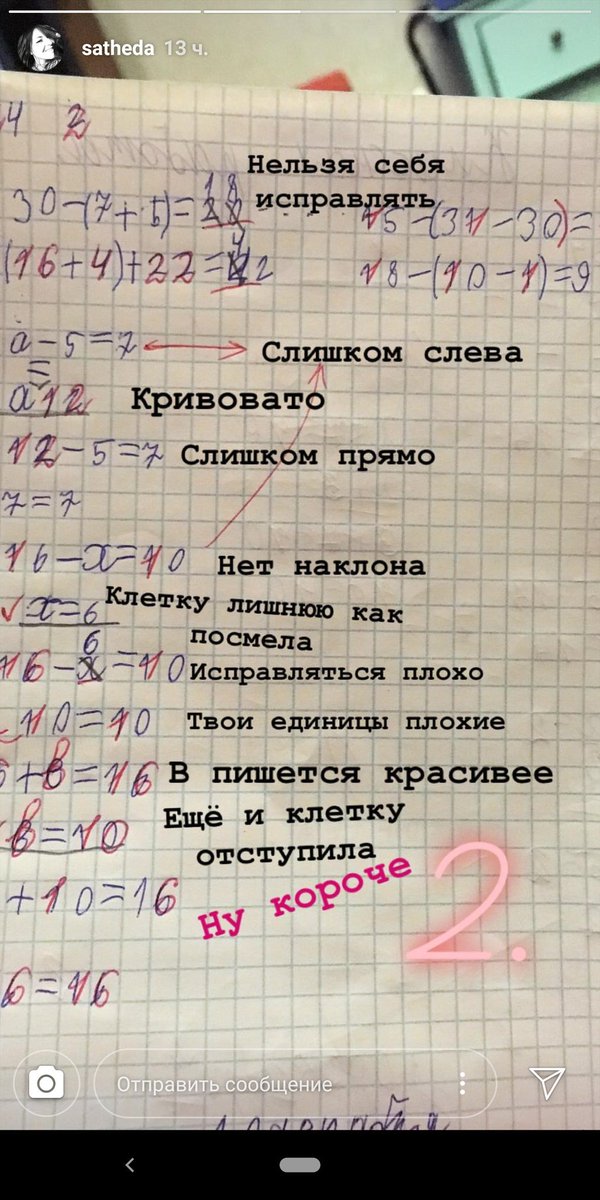 satheda 13 ч.
4 2
Нельзя себя
исправлять
30-(7+5)=18
15-(31-30)=
(16+4)+22=42
18-(10-1)=9
a-5=7
Слишком слева
=
a 12
Кривовато
12-5=7
Слишком прямо
7=7
16-x=10
Нет наклона
x=6
Клетку лишнюю как
посмела
6
16-x=10
Исправляться плохо
10=10
Твои единицы плохие
6+в=16
В пишется красивее
Ещё и клетку
в=10
отступила
+10=16
Ну короче
2.
6=16
Отправить сообщение